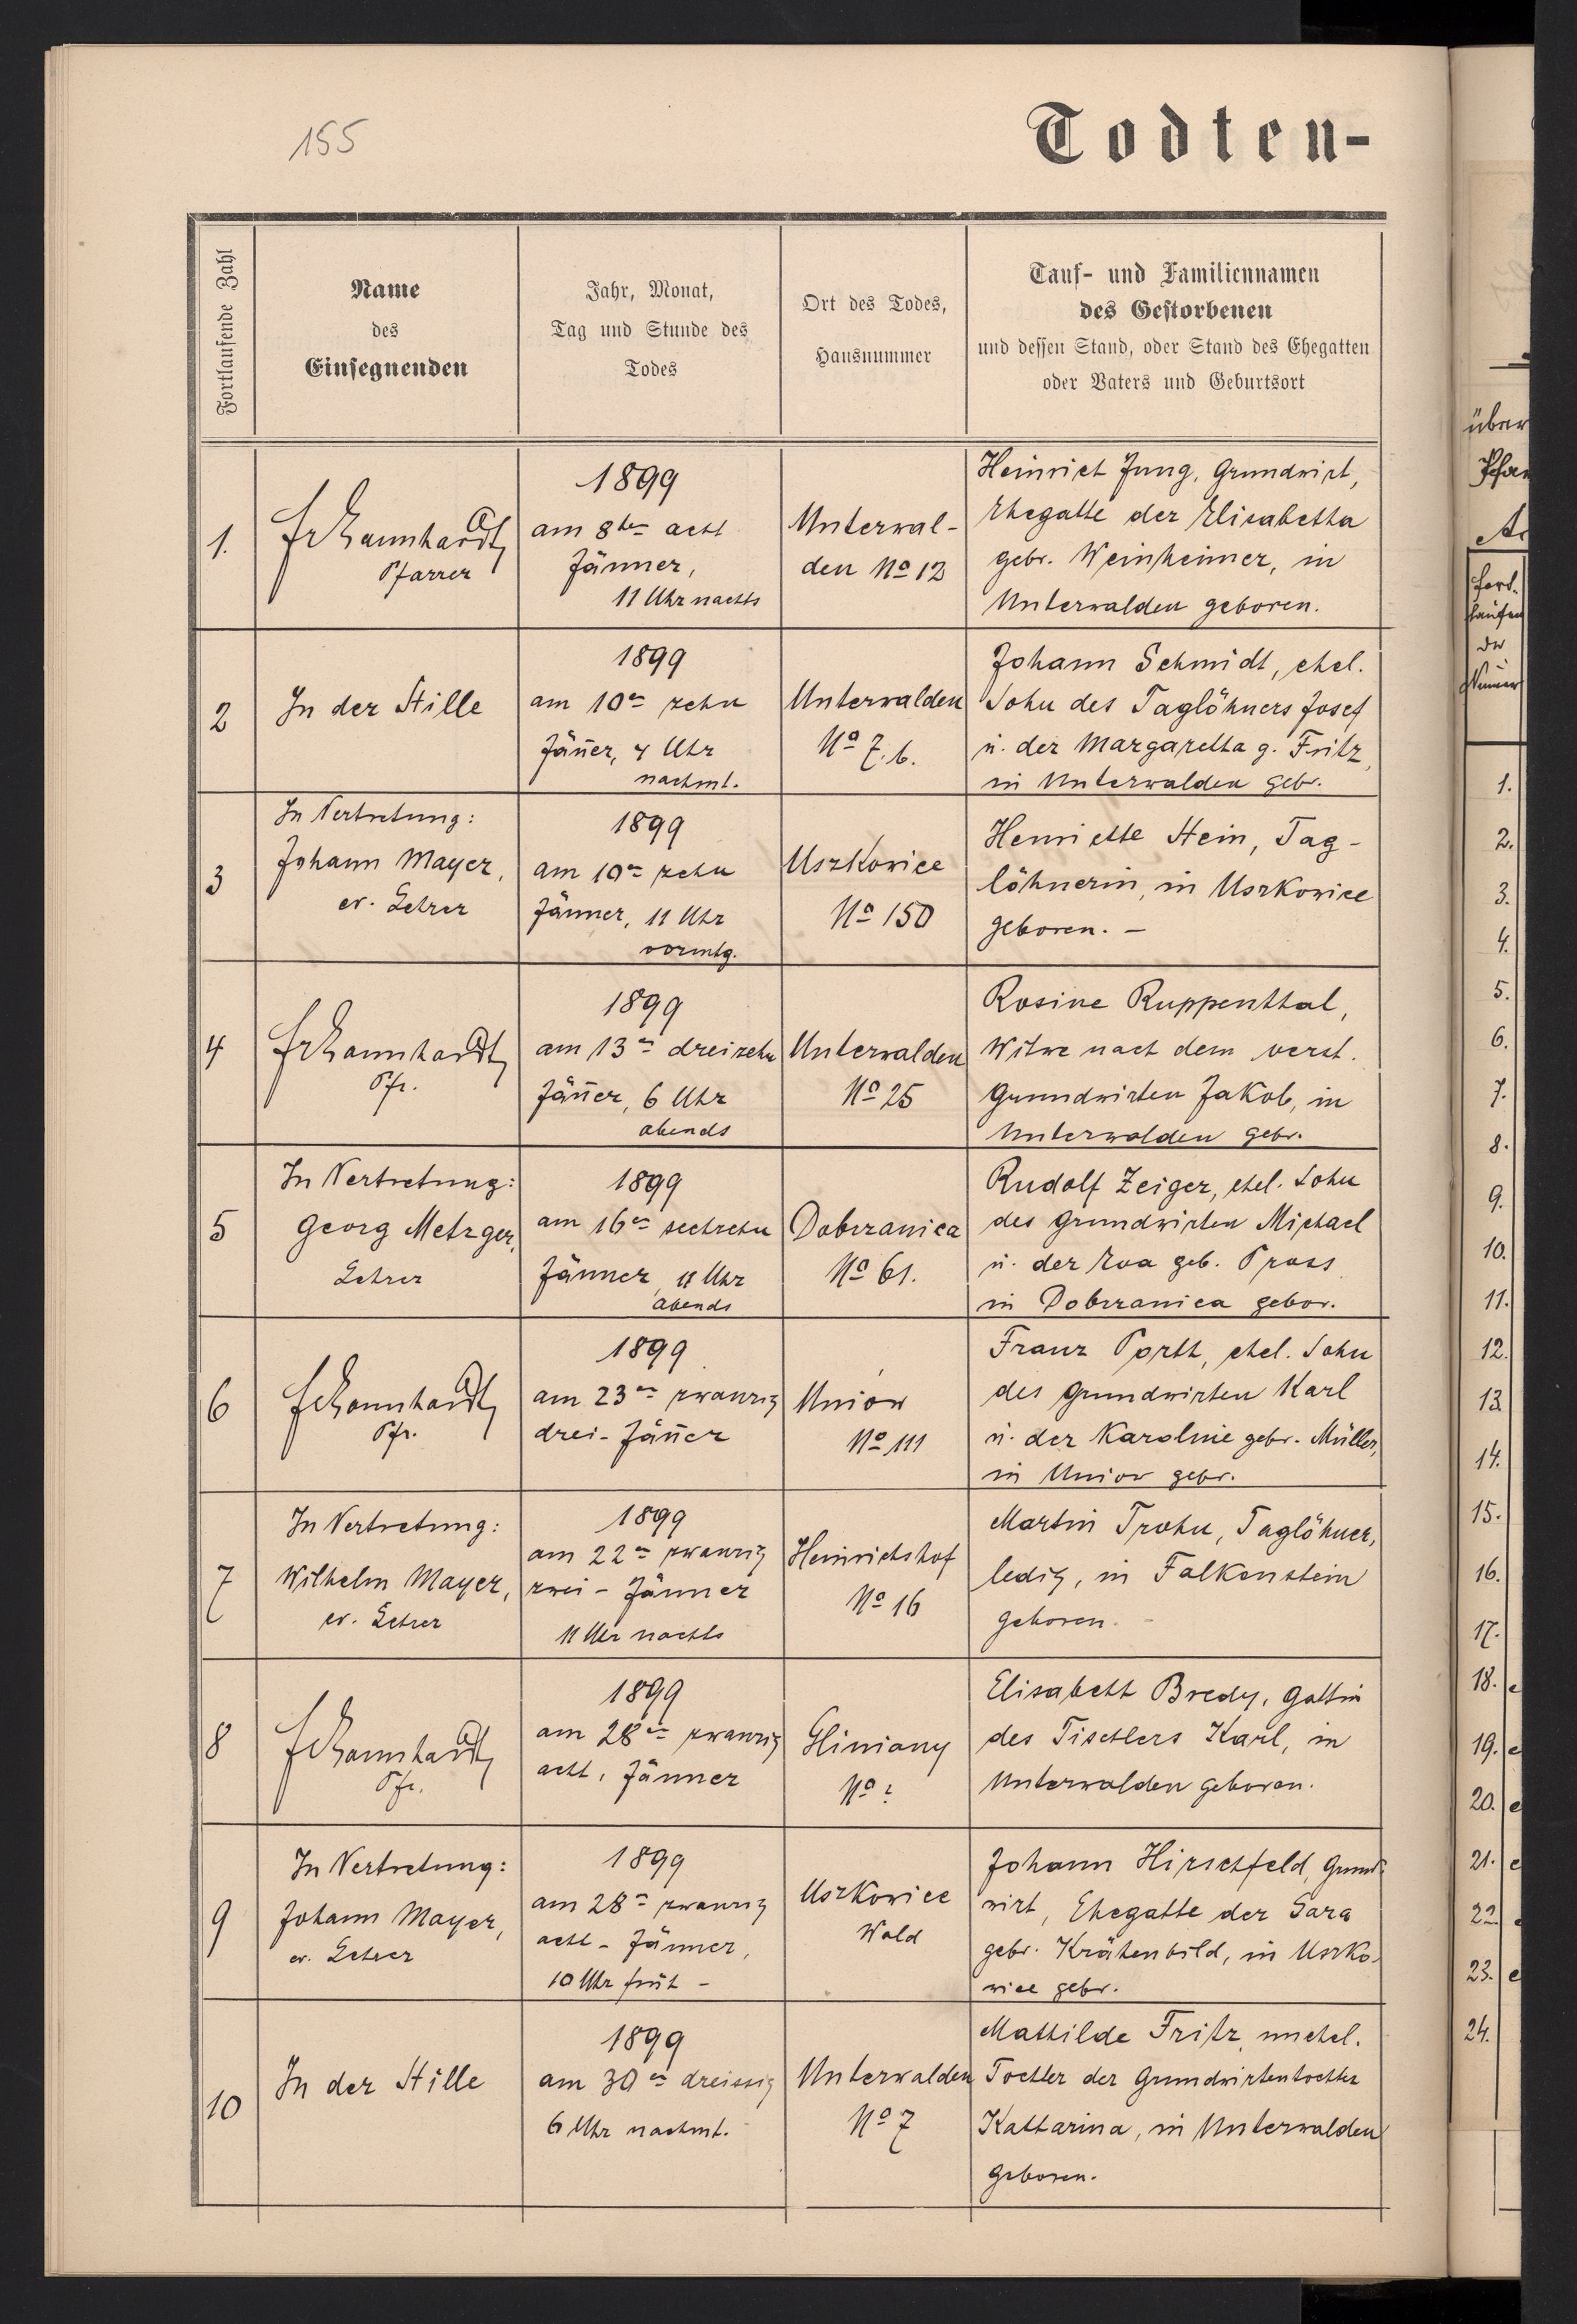 155
Todten-
Fortlaufende Zahl
Name
des
Einsegnenden
Jahr, Monat,
Tag und Stunde des
Todes
Ort des Todes,
Hausnummer
Tauf- und Familiennamen
des Gestorbenen
und dessen Stand, oder Stand des Ehegatten
oder Vaters und Geburtsort
1.
Pfarrer
1899
am 8ten acht
Jänner,
11 Uhr nachts
Unterwal-
den No 12
Heinrich Jung, Grundwirt,
Ehegatte der Elisabetha
gebr. Weinheimer, in
Unterwalden geboren.
2
In der Stille
1899
am 10en zehn
Jän̄er, 4 Uhr
nachmt.
Unterwalden
No 7.b.
Johann Schmidt, ehel.
Sohn des Taglöhners Josef
u. der Margaretha g. Fritz,
in Unterwalden gebr.
3
In Vertretung:
Johann Mayer,
ev. Lehrer
1899
am 10en zehn
Jänner, 11 Uhr
vormtg.
Uszkowice
No 150
Henriette Stein, Tag-
löhnerin, in Uszkowice
geboren. -
4
Pfr.
1899
am 13en dreizehn
Jän̄er, 6 Uhr
abends
Unterwalden
No 25
Rosine Ruppenthal,
Witwe nach dem verst.
Grundwirten Jakob, in
Unterwalden gebr.
5
In Vertretung:
Georg Metzger,
Lehrer
1899
am 16en sechzehn
Jänner, 11 Uhr
abends
Dobrzanica
No 61.
Rudolf Zeiger, ehel. Sohn
des Grundwirten Michael
u. der Eva geb. Pross
in Dobrzanica gebor.
6
Pfr.
1899
am 23en zwanzig
drei - Jän̄er
Uniów
No 111
Franz Porth, ehel. Sohn
des Grundwirten Karl
u. der Karoline gebr. Müller,
in Uniow gebr.
7
In Vertretung:
Wilhelm Mayer,
ev. Lehrer
1899
am 22en zwanzig
zwei - Jänner
11 Uhr nachts
Heinrichshof
No 16
Martin Trohn, Taglöhner,
ledig, in Falkenstein
geboren. -
8
Pfr.
1899
am 28en zwanzig
acht, Jänner
Gliniany
No ?
Elisabeth Bredy, Gattin
des Tischlers Karl, in
Unterwalden geboren.
9
In Vertretung:
Johann Mayer,
ev. Lehrer
1899
am 28en zwanzig
acht - Jänner,
10 Uhr früh -
Uszkowice
Wald
Johann Hirschfeld, Grund-
wirt, Ehegatte der Sara
gebr. Krähenbild, in Uszko-
wice gebr.
10
In der Stille
1899
am 30en dreissig
6 Uhr nachmt.
Unterwalden
No 7
Mathilde Fritz, unehel.
Tochter der Grundwirtentochter
Katharina, in Unterwalden
geboren.
über
1.
2.
3.
4.
5.
6.
7.
8.
9.
10.
11.
12.
13.
14.
15.
16.
17.
18.
19.
20.
21.
22.
23.
24.